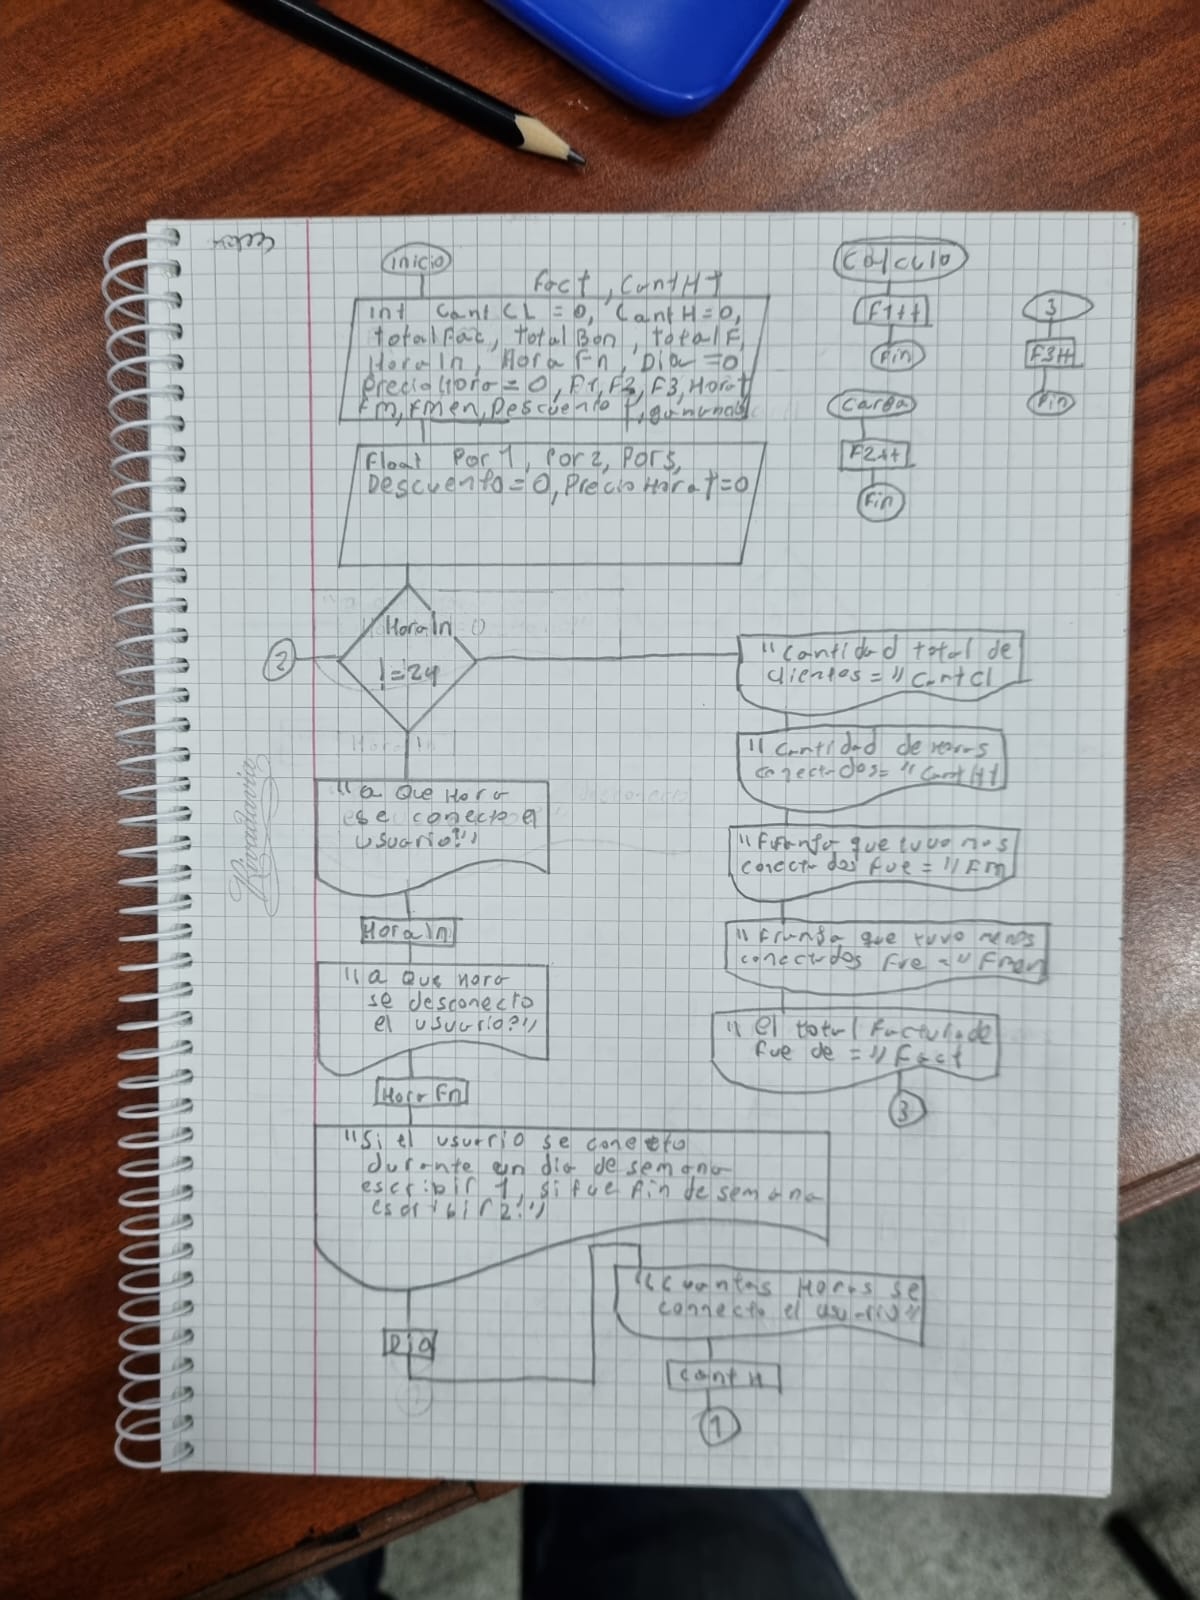 inicio
Fact, CantHT
Int CantCL = 0, CantH=0,
totalFac, totalBon, totalF,
HoraIn, HoraFn, Dia =0
PrecioHora = 0, F1, F2, F3, HoraT
Fm, Fmen, Descuento
Float Por1, Por2, Por3,
Descuento=0, PrecioHoraT=0
HoraIn
!=24
2
"a que Hora
se conecto el
usuario?",
HoraIn
"a que Hora
se desconecto
el usuario?",
HoraFn
"Si el usuario se conecto
durante un dia de semana
escribir 1, si fue fin de semana
escribir 2:",
Dia
"Cuantas Horas se
connecto el usuario"
Cant H
1
"Cantidad total de
clientes = "CantCl
"Cantidad de horas
conectados= "CantHt
"Franja que tuvo mas
conectados fue = "Fm
"Franja que tuvo menos
conectados fue = "Fmen
"el total facturado
fue de = "Fact
3
Calculo
F1++
Fin
Carga
F2++
Fin
3
F3H
Fin
Rivadavia